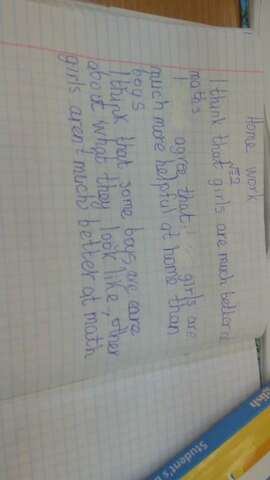 Home work
№2
I think that girls are much better
maths
I agree that girls are
much more helpful at home than
boys
I think that some boys are care
about what they look like, other
girls aren't much better at math
Student's